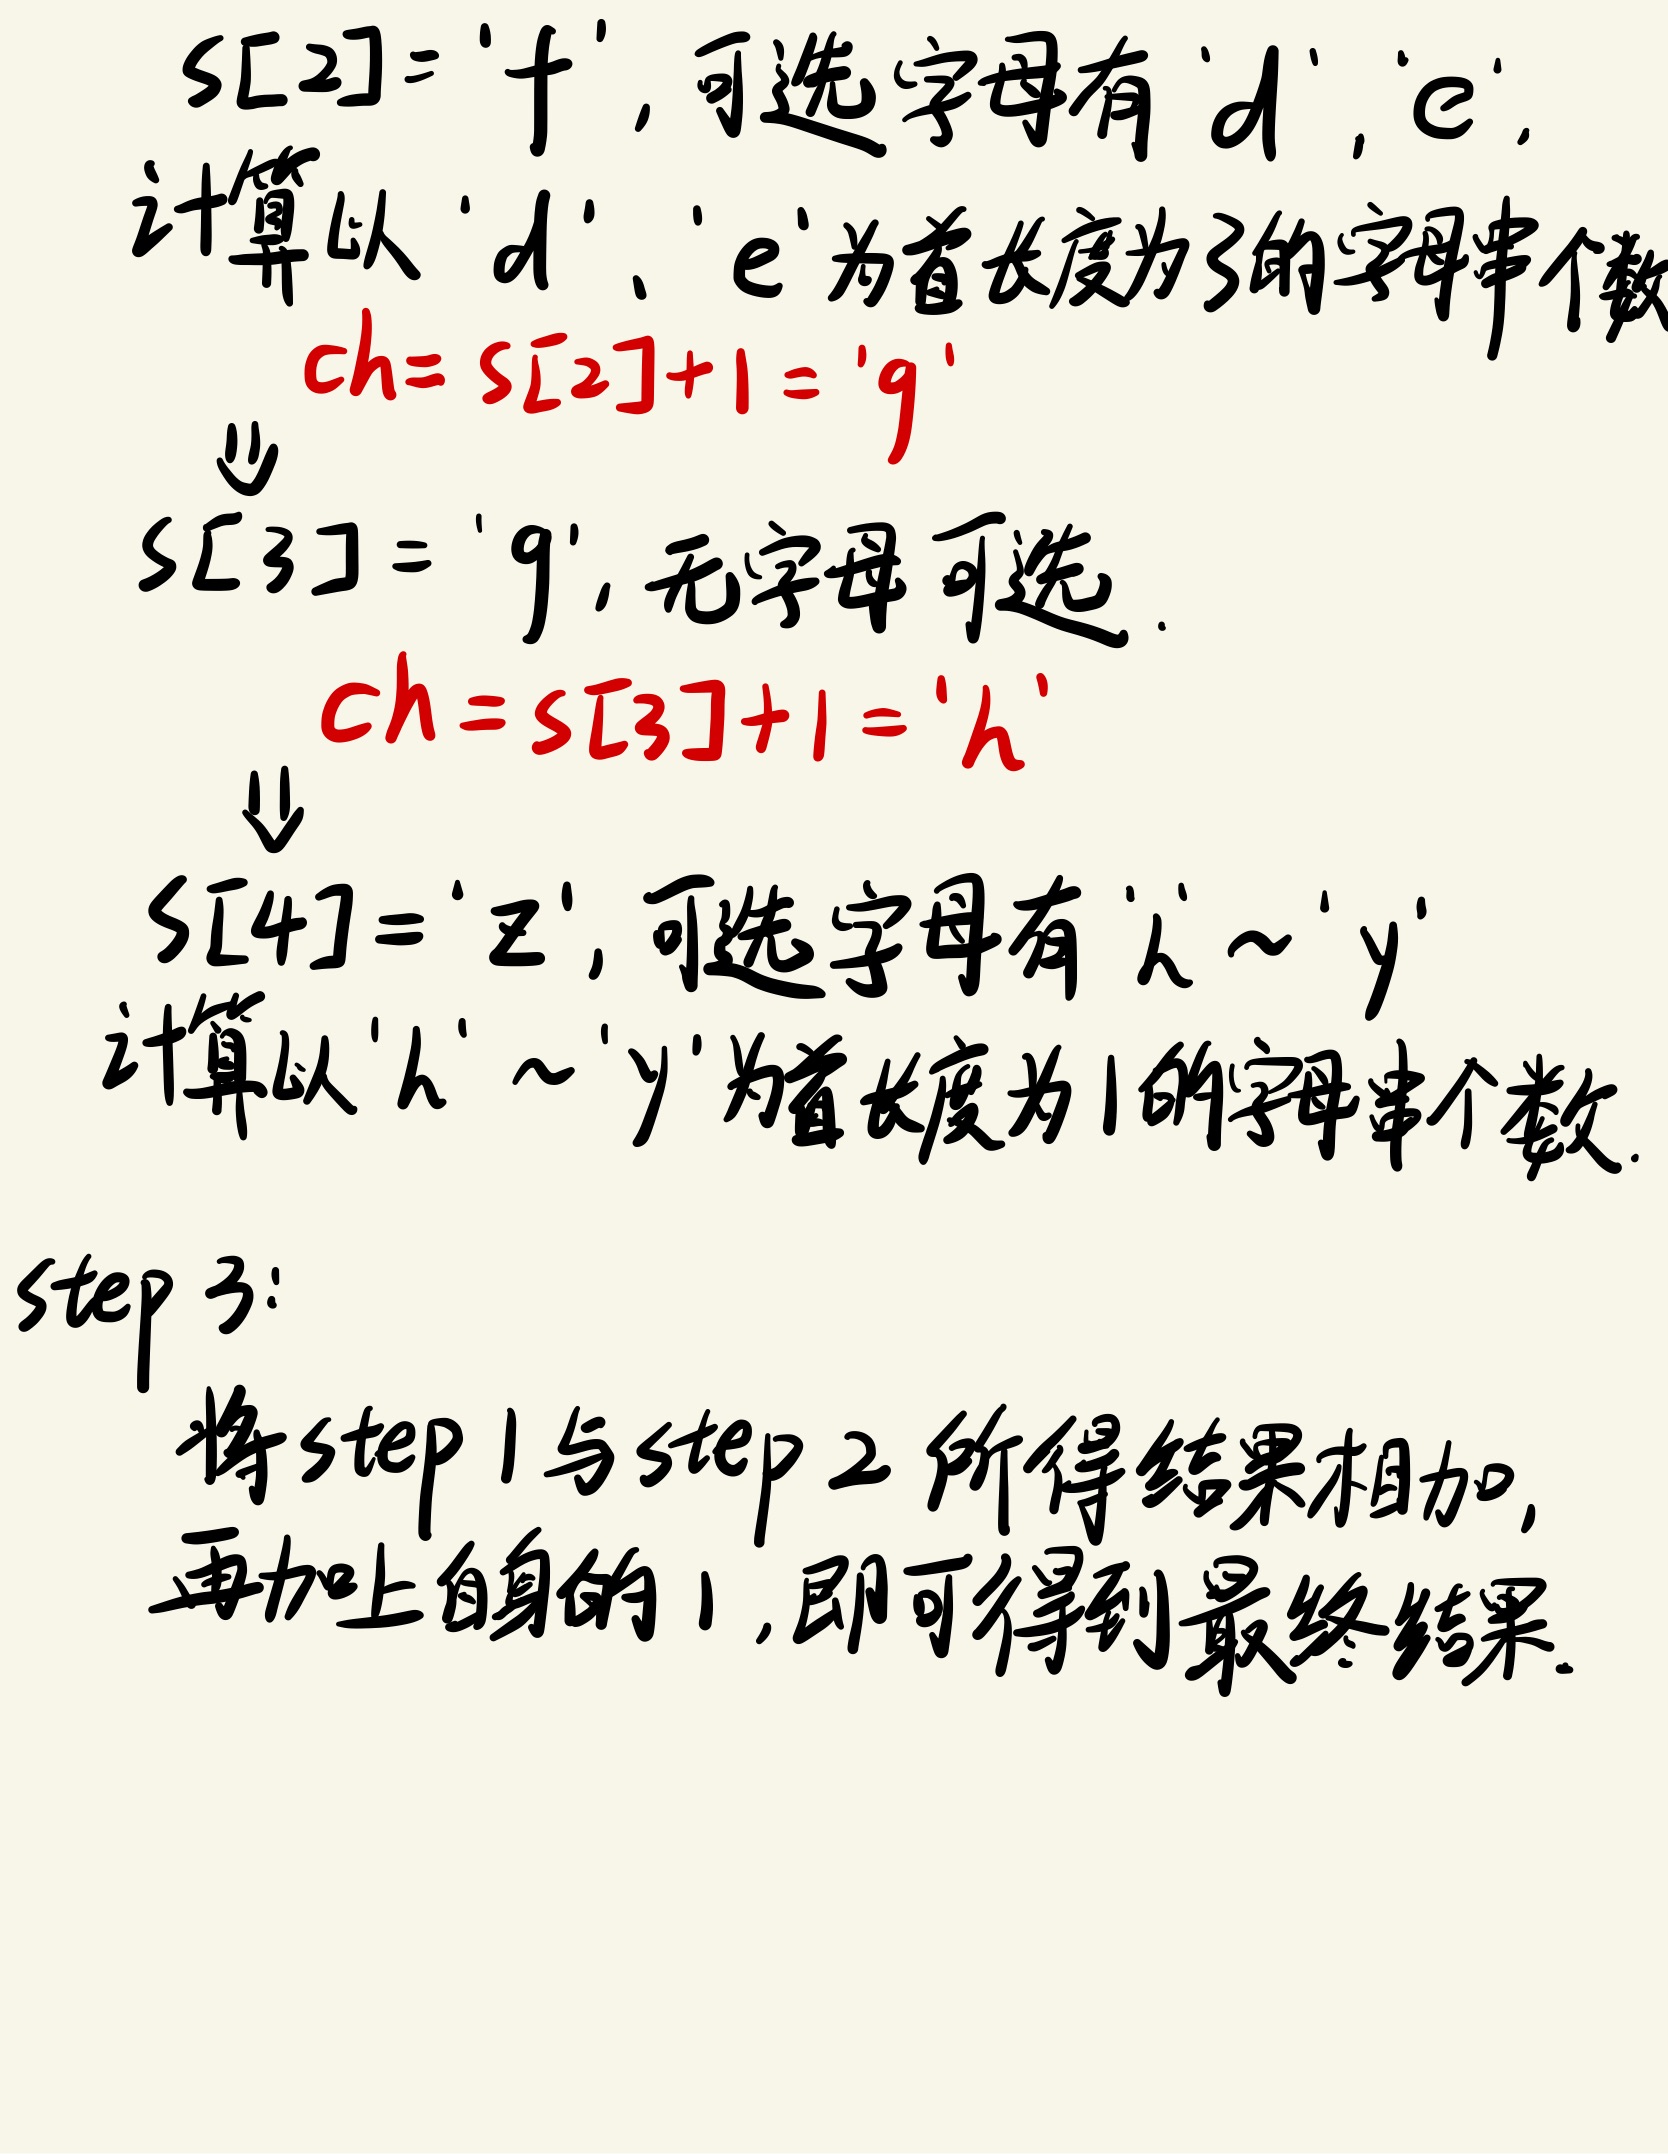 s[2]='f',可选字母有'd','e'.
计算以'd'、'e'为首长度为3的字母串个数
ch=s[2]+1='g'
⇓
s[3]='g',无字母可选.
ch=s[3]+1='h'
⇓
s[4]='z',可选字母有'h'~'y'
计算以'h'~'y'为首长度为1的字母串个数.
step 3:
将step 1与step 2所得结果相加,
再加上自身的1,即可得到最终结果.